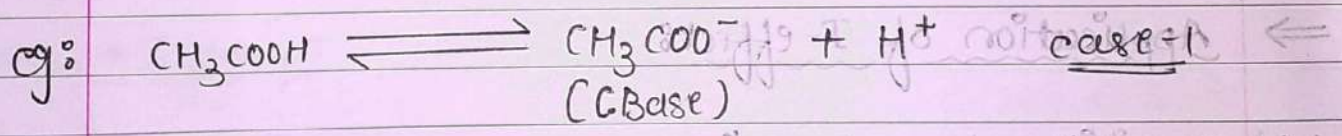 eg: CH₃COOH ⇌ CH₃COO⁻ + H⁺ case-1
(CBase)